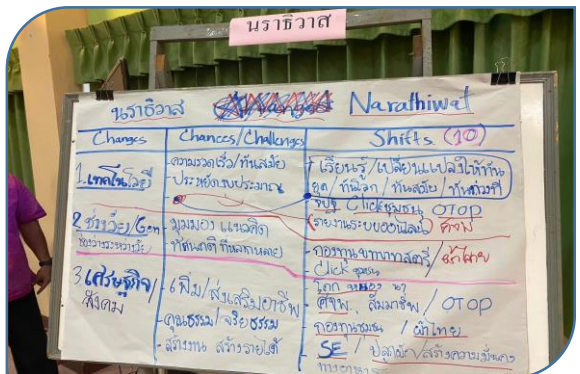 นราธิวาส
นราธิวาส Narathiwat
Changes Chances/Challenges Shifts (10)
1. เทคโนโลยี
ความรวดเร็ว/ทันสมัย
ประหยัดงบประมาณ
เรียนรู้/เปลี่ยนแปลงให้ทัน
ยุค ทันโลก/ทันสมัย/ทันท่วงที
จปฐ Click ชุมชน OTOP
(รายงานระบบออนไลน์)
2. ช่วงวัย/Gen
ช่องว่างระหว่างวัย
มุมมอง แนวคิด
ทัศนคติ ที่หลากหลาย
- กองทุนบทบาทสตรี/ผ้าไทย
Click ชุมชน
3. เศรษฐกิจ/
สังคม
เพิ่ม/ส่งเสริมอาชีพ
- คุณธรรม/จริยธรรม
- สร้างงาน สร้างรายได้
โคก หนอง นา
- ศจพ. สัมมาชีพ/OTOP
กองทุนชุมชน/ผ้าไทย
SE/ปลูกผัก/สร้างความมั่นคง
ทางอาหาร